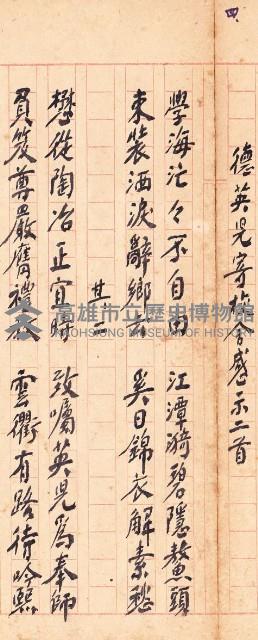 四
德英兒寄旅有感示二首
學海茫々不自由　江潭漪碧隱鰲頭
束裝洒淚辭鄉去　奚日錦衣解素愁
其二
懋從陶冶正宜時　致囑英兒為奉師
負笈尊嚴膺禮教　雲衢有路待吟熙
高雄市立歷史博物館
KAOHSIUNG MUSEUM OF HISTORY